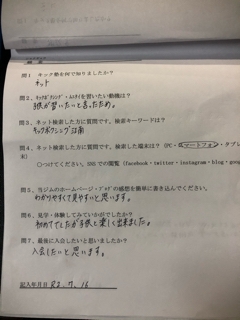 問1、キック塾を何で知りましたか？
ネット
問2、キックボクシング・ムエタイを習いたい動機は？
子供が習いたいと言ったため。
問3、ネット検索した方に質問です。検索キーワードは？
キックボクシング 江南
問4、ネット検索した方に質問です。検索した端末は？（PC・スマートフォン・タブレ
末）
○つけてください。SNSでの閲覧（facebook・twitter・instagram・blog・goo
問5、当ジムのホームページ・ブログの感想を簡単に書き込んでください。
わかりやすくて見やすいと思います。
問6、見学・体験してみていかがでしたか？
初めてでしたが子供と楽しく出来ました。
問7、最後に入会したいと思いましたか？
入会したいと思います。
記入年月日 R2.9.16